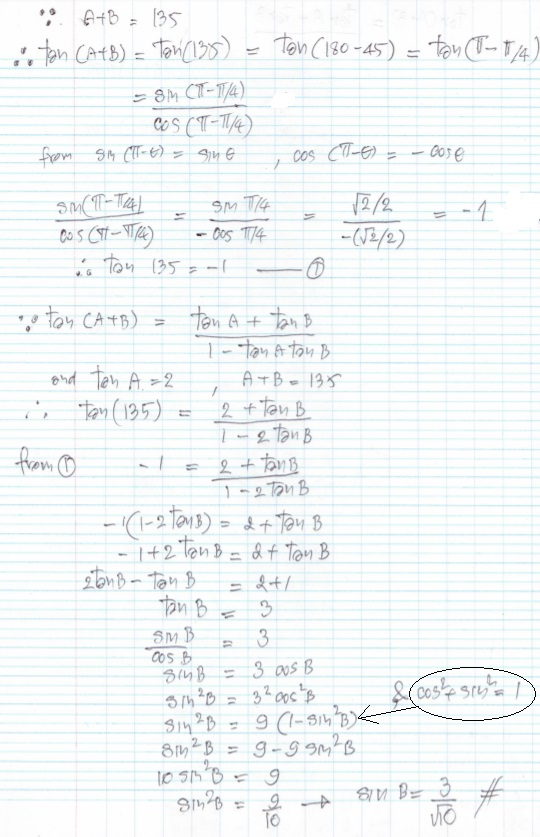 ∵ A+B = 135
∴ tan (A+B) = tan(135) = tan(180-45) = tan(π-π/4)
= sin(π-π/4) / cos(π-π/4)
from sin(π-θ) = sinθ , cos(π-θ) = -cosθ
sin(π-π/4) / cos(π-π/4) = sin π/4 / -cos π/4 = √2/2 / -(√2/2) = -1
∴ tan 135 = -1 —— ①
∵ tan (A+B) = tan A + tan B / 1 - tan A tan B
and tan A = 2 , A+B = 135
∴ tan(135) = 2 + tan B / 1 - 2 tan B
from ① -1 = 2 + tan B / 1 - 2 tan B
-1(1-2 tan B) = 2 + tan B
-1 + 2 tan B = 2 + tan B
2 tan B - tan B = 2+1
tan B = 3
sin B / cos B = 3
sin B = 3 cos B
sin²B = 3² cos²B & cos² + sin² = 1
sin²B = 9 (1-sin²B)
sin²B = 9 - 9 sin²B
10 sin²B = 9
sin²B = 9/10 → sin B = 3/√10 #